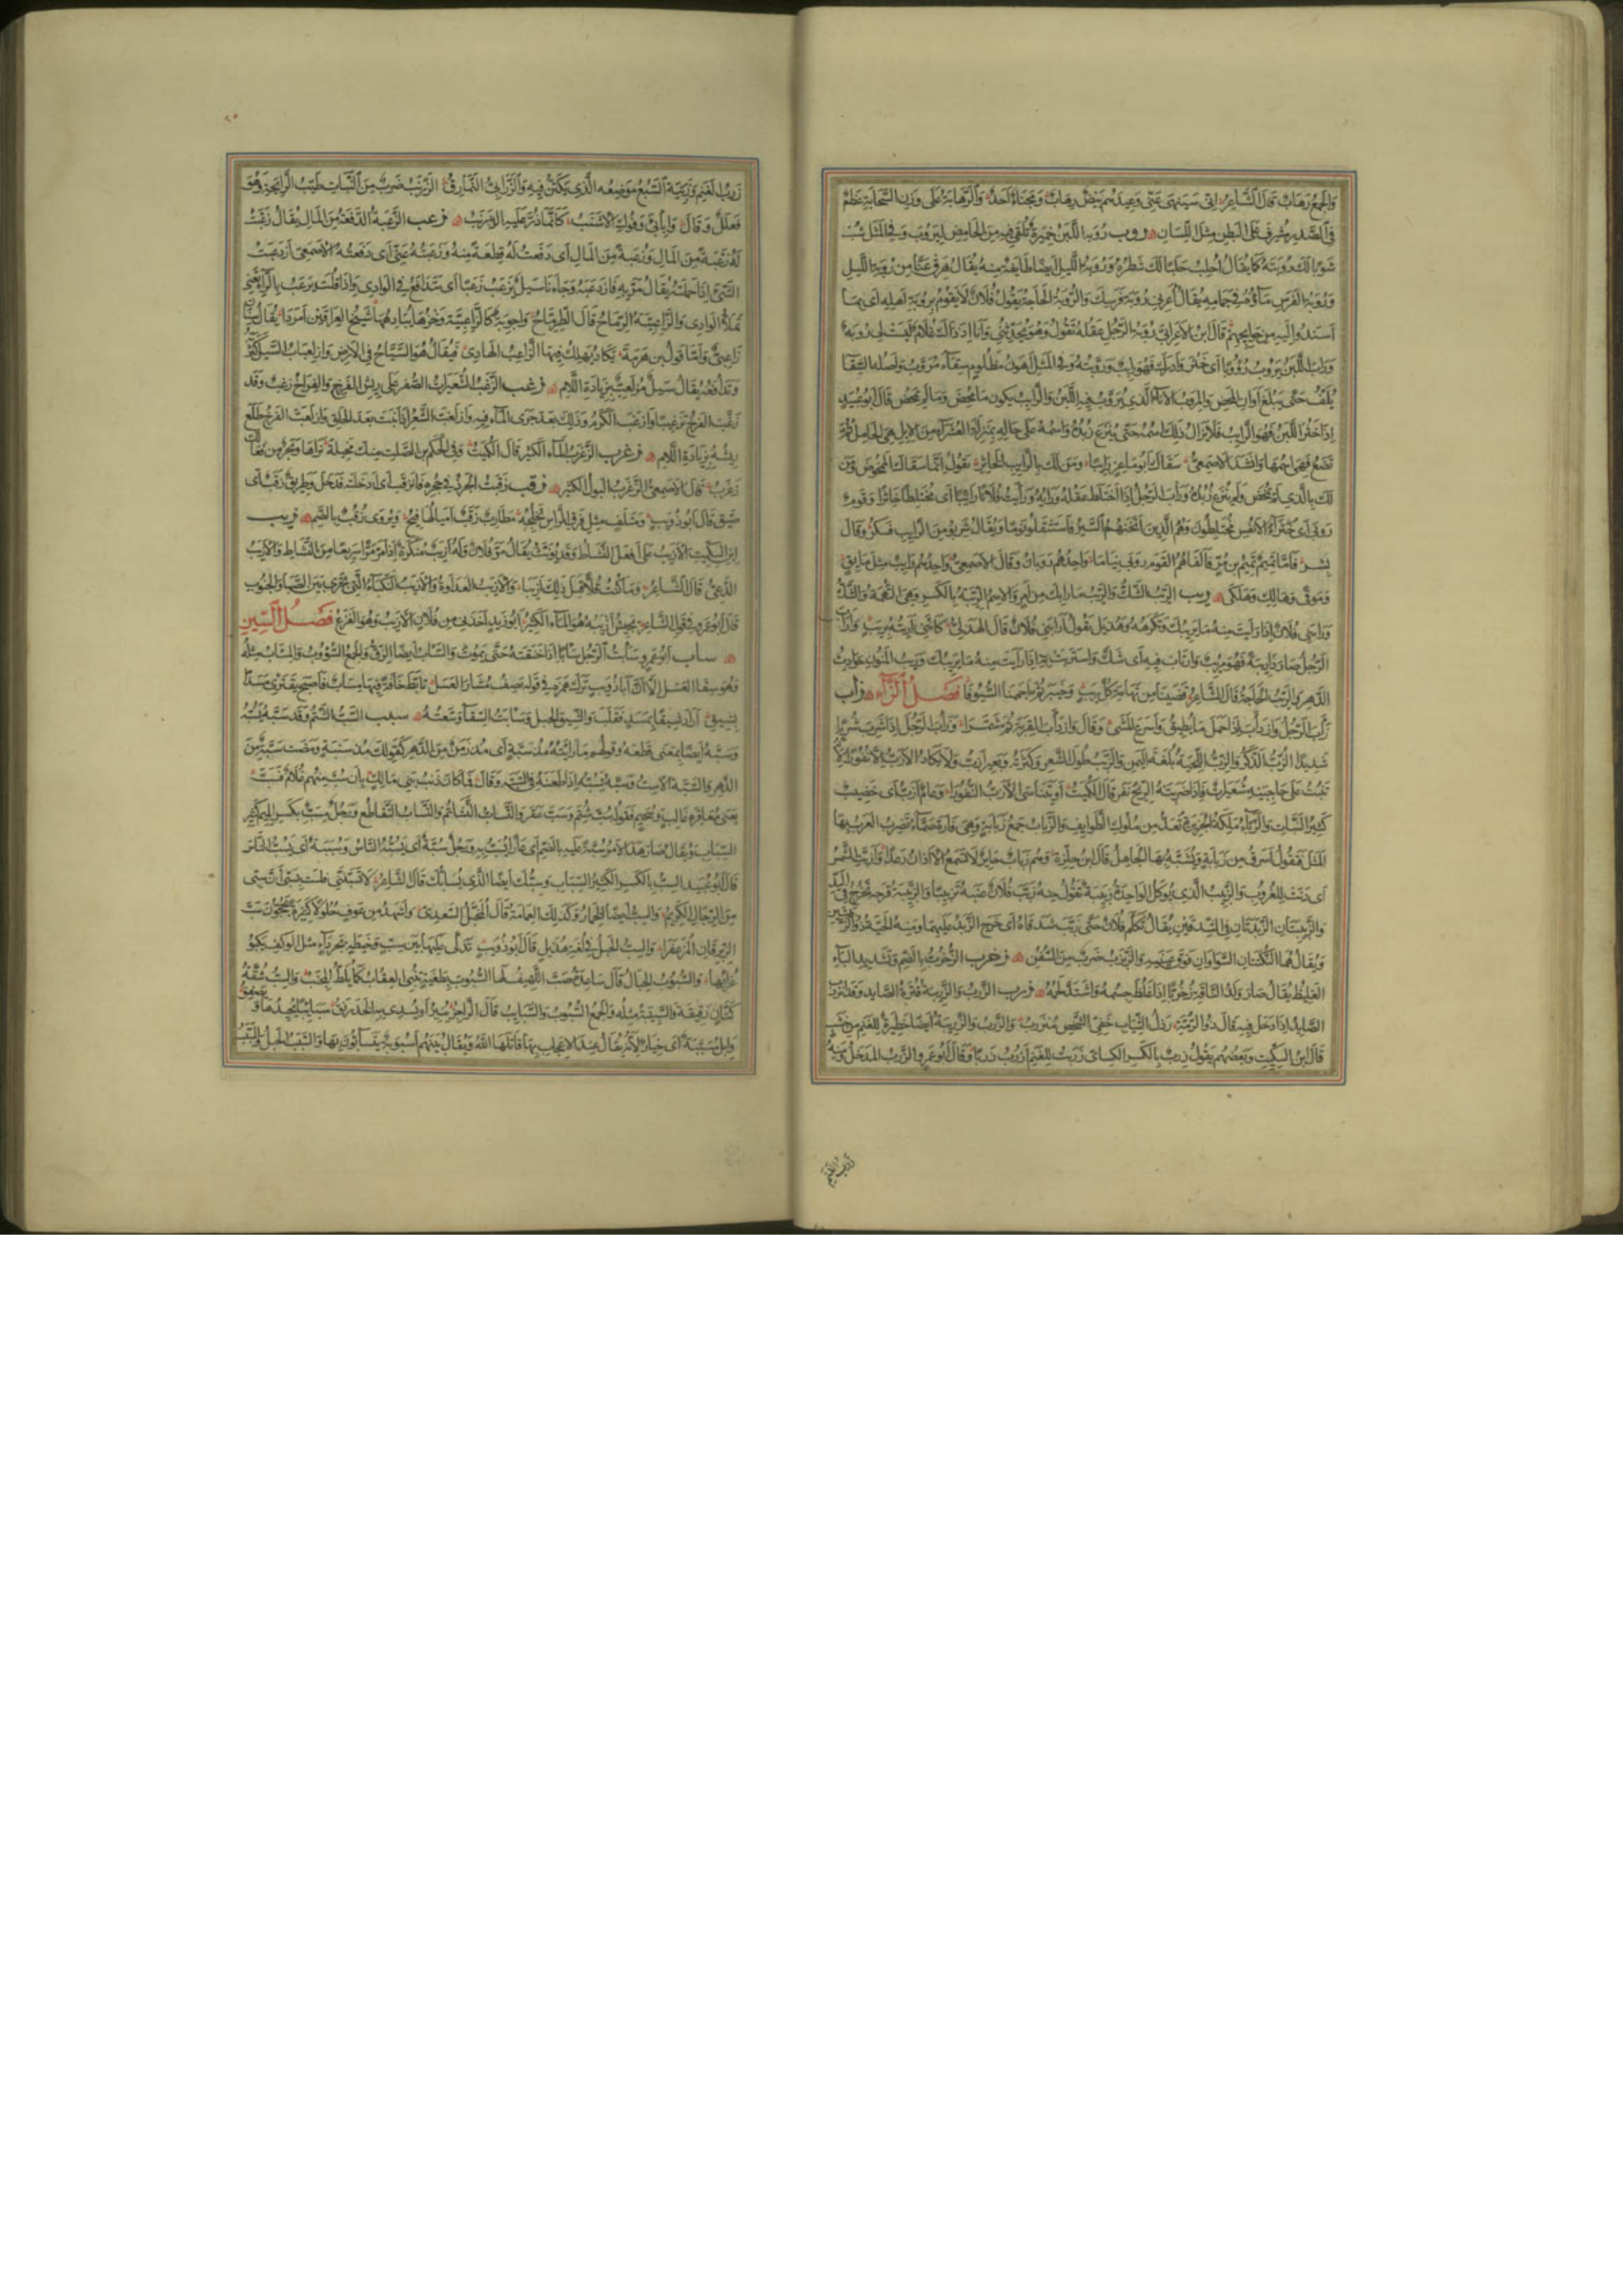 والجمع رهاب قال الشاعر اني سينهى عني وعيدهم بيض رهاب ومجنأ اجد والرهابة على وزن السحابة عظم
في الصدر مشرف على البطن مثل اللسان روب روبة اللبن خميرة تلقى فيه من الحامض ليروب وفي المثل شب
شوبا لك روبته كما يقال احلب حلبا لك شطره وروبة الليل ايضا طايفة منه يقال هرق عنا من روبة الليل
وروبة الفرس ماؤه في جمامه يقال اعرني روبة فرسك والروبة الحاجة يقول فلان لا يقوم بروبة اهله اى بما
اسندوا اليه من حوايجهم قال ابن الاعرابي روبة الرجل عقله تقول وهو يحدثني وانا اذ ذاك غلام ليست لي روبة
وراب اللبن يروب روبا اى خثر وادرك فهو رايب وروبته وفي المثل اهون مظلوم سقاء مروب واصله السقا
يلف حتى يبلغ اوان المخض والمروب الاناء الذي يروب فيه اللبن والرايب يكون ما مخض وما لم يمخض قال ابو عبيد
اذا خثر اللبن فهو الرايب فلا يزال ذلك اسمه حتى ينزع زبده واسمه على حاله بمنزلة العشراء من الابل هي الحامل ثم
تضع فهي اسمها وانشد الاصمعي سقاك ابو ماعز رايبا ومن لك بالرايب الخاثر يقول انما سقاك الممخوض ومن
لك بالذي لم يمخض ولم ينزع زبده وراب الرجل اذا اختلط عقله ورايه ورايت فلانا رايبا اى مختلطا خاثرا وقوم
روبى اى خثراء الانفس مختلطون وهم الذين اثخنهم السير فاستثقلوا نوما ويقال شربوا من الرايب فسكروا قال
بشر فاما تميم تميم بن مر فالفاهم القوم روبى نياما واحدهم روبان وقال الاصمعي واحدهم رايب مثل مايق
وموقى وهالك وهلكى ريب الريب الشك والريب ما رابك من امر والاسم الريبة بالكسر وهي التهمة والشك
ورابني فلان اذا رايت منه ما يريبك وتكرهه وهذيل تقول ارابني فلان قال الهذلي كانني اربته بريب واراب
الرجل صار ذا ريبة فهو مريب وارتاب فيه اى شك واستربت به اذا رايت منه ما يريبك وريب المنون حوادث
الدهر والريب الحاجة قال الشاعر قضينا من تهامة كل ريب وخيبر ثم اجممنا السيوفا فصل الزاء زاب
زاب الرجل وازداب اذا حمل ما يطيق واسرع المشي وقال وازداب القربة ثم شمرا وزاب الرجل اذا شرب شربا
شديدا الزب الذكر والزب اللحية بلغة اليمن والزبب طول الشعر وكثرته وبعير ازب ولا يكاد الازب الا نفورا لانه
تنبت على حاجبيه شعيرات فاذا ضربته الريح نفر قال الكميت او يتناسى الازب النفورا وعام ازب اى خصيب
كثير النبات والزباء ملكة الجزيرة تعد من ملوك الطوايف والزباب جمع زبابة وهي فارة صماء تضرب العرب بها
المثل فتقول اسرق من زبابة ويشبه بها الجاهل قال ابن حلزة وهم زباب حاير لا تسمع الاذان رعدا وازبت الشمس
اى دنت للغروب والزبيب الذي يوكل الواحدة زبيبة تقول منه زبب فلان عنبه تزبيبا والزبيبة قرحة تخرج في اليد
والزبيبتان الزبدتان في الشدقين يقال تكلم فلان حتى زبب شدقاه اى خرج الزبد عليهما ومنه الحية ذو الزبيبتين
ويقال هما النكتتان السوداوان فوق عينيه والزبزب ضرب من السفن زخرب الزخرب بالضم وتشديد الباء
الغليظ يقال صار ولد الناقة زخربا اذا غلظ جسمه واشتد لحمه زرب الزرب والزريبة قترة الصايد وقد انزرب
الصايد اذا دخل فيه قال ذو الرمة رذل الثياب خفي الشخص منزرب والزرب والزريبة ايضا حظيرة للغنم من خشب
قال ابن السكيت وبعضهم يقول زرب بالكسر الكسائي زربت للغنم ازرب زربا وقال ابو عمرو الزرب المدخل ومنه
زرب الغنم
زرب الغنم وزريبة السبع موضعه الذي يكتن فيه والزرابي النمارق الزرنب ضرب من النبات طيب الرايحة وهو
فعلل وقال وابابي وفوك الاشنب كانما ذر عليه الزرنب زعب الزعبة الدفعة من المال يقال زعبت
له زعبة من المال وزعبة من المال اى دفعت له قطعة منه وزعبته عني اى دفعته الاصمعي ازدعبت
الشيء اذا حملته يقال مر به فازدعبه وجاءنا سيل يزعب زعبا اى يتدافع في الوادي واذا قلت يرعب بالراء تعني
يملأ الوادي والزاعبية الرماح قال الطرماح واجوبة كالزاعبية وخزها يبادهها شيخ العراقين امردا يقال سنان
زاعبي واما قول ابن هرمة يكاد يهلك فيها الزاعب الهادي فيقال هو السياح في الارض وازلعباب السيل كثرته
وتدافعه يقال سيل مزلعب بزيادة اللام زغب الزغب الشعيرات الصفر على ريش الفرخ والفراخ زغب وقد
زغب الفرخ تزغيبا وازغب الكرم وذلك بعد جري الماء فيه وازلغب الشعر اذا نبت بعد الحلق وازلغب الفرخ طلع
ريشه بزيادة اللام زغرب الزغرب الماء الكثير قال الكميت وفي الحكم بن الصلت منك مخيلة نراها وبحر من فعالك
زغرب قال الاصمعي الزغرب البول الكثير زقب زقبت الجرذ في جحره فانزقب اى ادخلته فدخل وطريق زقب اى
ضيق قال ابو ذويب ومتلف مثل فرق الراس تخلجه مطارب زقب اميالها فيح ويروى زقب بالضم زيب
ابن السكيت الازيب على افعل النشاط وقد يؤنث يقال مر فلان وله ازيب منكرة اذا مر مرا سريعا من النشاط والازيب
الدعي قال الشاعر وما كنت قلا قبل ذلك ازيبا والازيب العداوة والازيب النكباء التي تجري بين الصبا والجنوب
قال ابو عمرو في قول الشاعر يجيش ازيبه هو الماء الكثير ابو زيد اخذني من فلان الازيب وهو الفزع فصل السين
ساب ابو عمرو سابت الرجل سابا اذا خنقته حتى يموت والساب ايضا الزق والجمع السؤوب والمساب مثله
وهو سقاء العسل الا ان ابا ذويب ترك همزه في قوله يصف مشتار العسل تابط خافة فيها مساب فاصبح يقتري مسدا
بشيق اراد شيقا بمسد فقلب والشيق الجبل وسابت السقا وسعته سبب السب الشتم وقد سبه يسبه
وسبه ايضا بمعنى قطعه وقولهم ما رايته منذ سبة اى منذ زمن من الدهر كقولك منذ سنبة ومضت سبة من
الدهر والسبة الاست وسبه يسبه اذا طعنه في السبة وقال فما كان ذنب بني مالك بان سب منهم غلام فسب
يعني معاقرة غالب وسحيم فقوله سب شتم وسب عقر والتساب التشاتم والتساب التقاطع ورجل مسب بكسر الميم كثير
السباب ويقال صار هذا الامر سبة عليه بالضم اى عارا يسب به ورجل سبة اى يسبه الناس وسببة اى يسب الناس
قال ابو عبيد السب بالكسر الكثير السباب وسبك ايضا الذي يسابك قال الشاعر لا تسبنني فلست بسبي ان سبي
من الرجال الكريم والسب ايضا الخمار وكذلك العمامة قال المخبل السعدي واشهد من عوف حلولا كثيرة يحجون سب
الزبرقان المزعفرا والسب الحبل في لغة هذيل قال ابو ذويب تدلى عليها بين سب وخيطة بجرداء مثل الوكف يكبو
غرابها والسبوب الحبال قال ساعدة صب اللهيف لها السبوب بطغية تنبي العقاب كما يلط المجنب والسب شقة
كتان رقيقة والسبيبة مثله والجمع السبوب والسبايب قال الراجز ينير او يسدي به الخدرنق سبايبا يجيدها ويصفق
وابل مسببة اى خيار لانه يقال عند الاعجاب بها قاتلها الله ويقال بينهم اسبوبة يتسابون بها والسبب الحبل والسبب